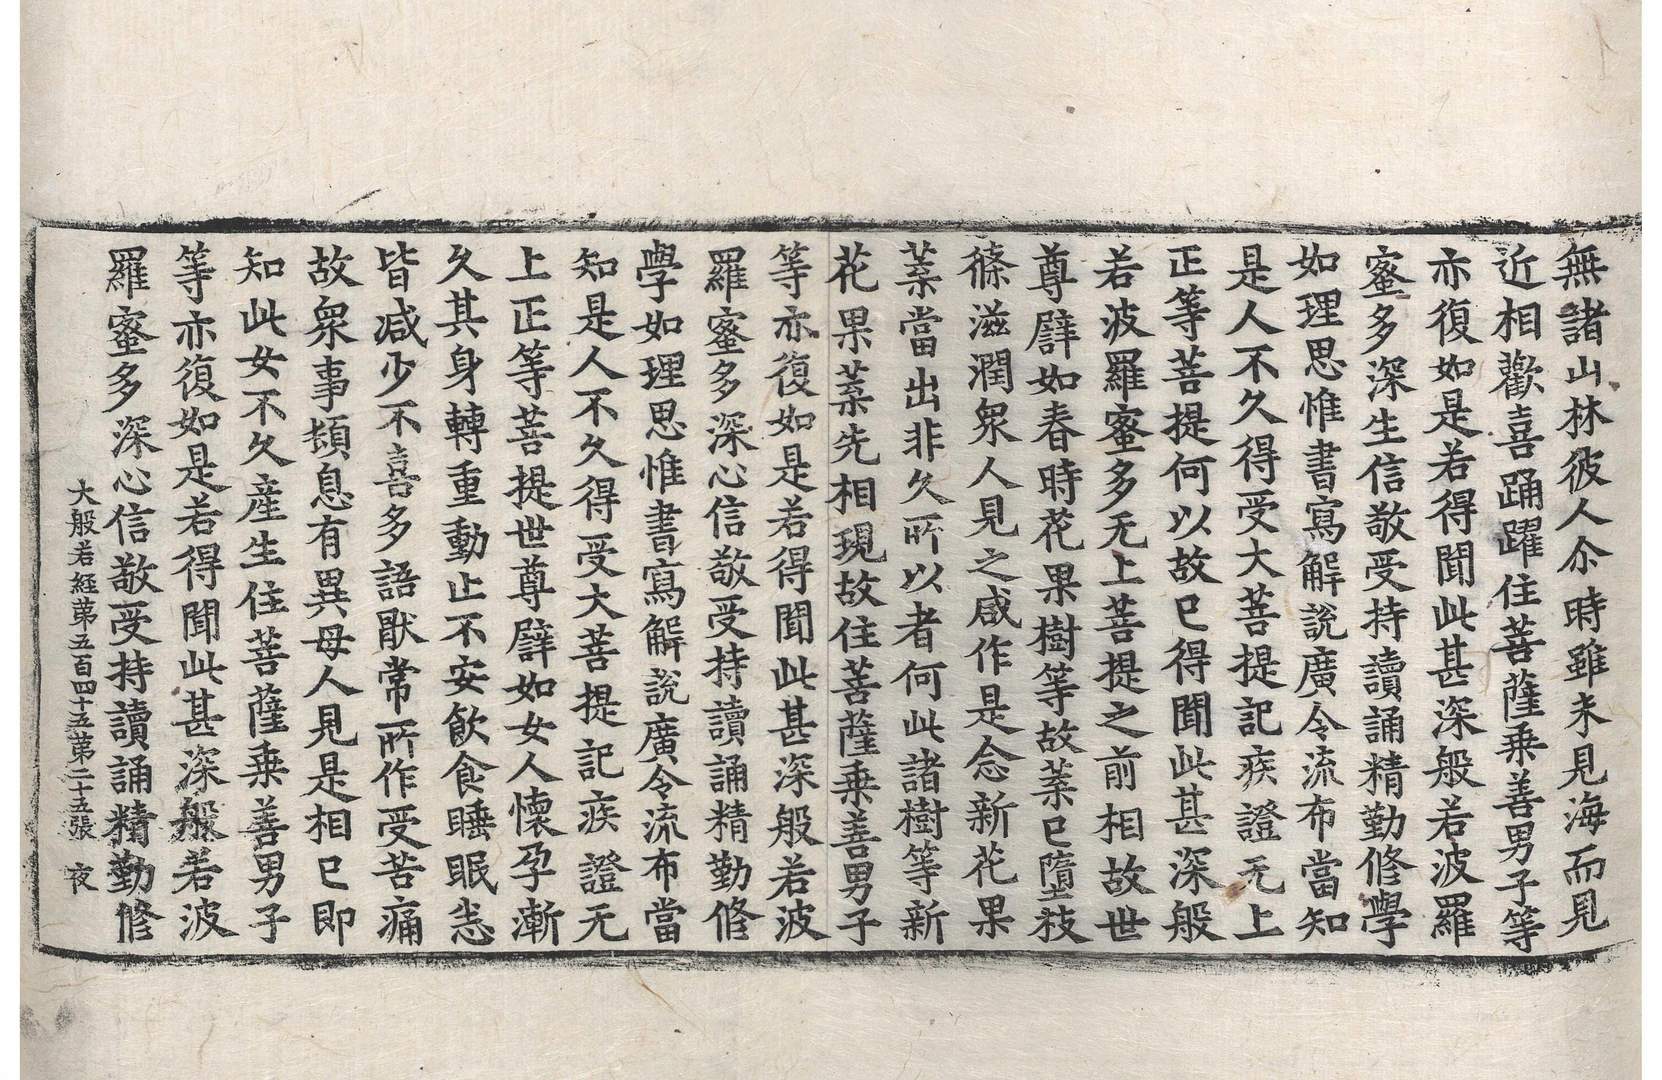 無諸山林彼人尒時雖未見海而見
近相歡喜踊躍住菩薩乗善男子等
亦復如是若得聞此甚深般若波羅
蜜多深生信敬受持讀誦精勤修學
如理思惟書寫解說廣令流布當知
是人不久得受大菩提記疾證无上
正等菩提何以故已得聞此甚深般
若波羅蜜多无上菩提之前相故世
尊譬如春時花果樹等故葉已墮枝
條滋潤衆人見之咸作是念新花果
葉當出非久所以者何此諸樹等新
花果葉先相現故住菩薩乗善男子
等亦復如是若得聞此甚深般若波
羅蜜多深心信敬受持讀誦精勤修
學如理思惟書寫解說廣令流布當
知是人不久得受大菩提記疾證无
上正等菩提世尊譬如女人懷孕漸
久其身轉重動止不安飲食睡眠悉
皆減少不喜多語猒常所作受苦痛
故衆事頓息有異母人見是相已即
知此女不久産生住菩薩乗善男子
等亦復如是若得聞此甚深般若波
羅蜜多深心信敬受持讀誦精勤修
大般若經第五百四十五第二十五張 夜